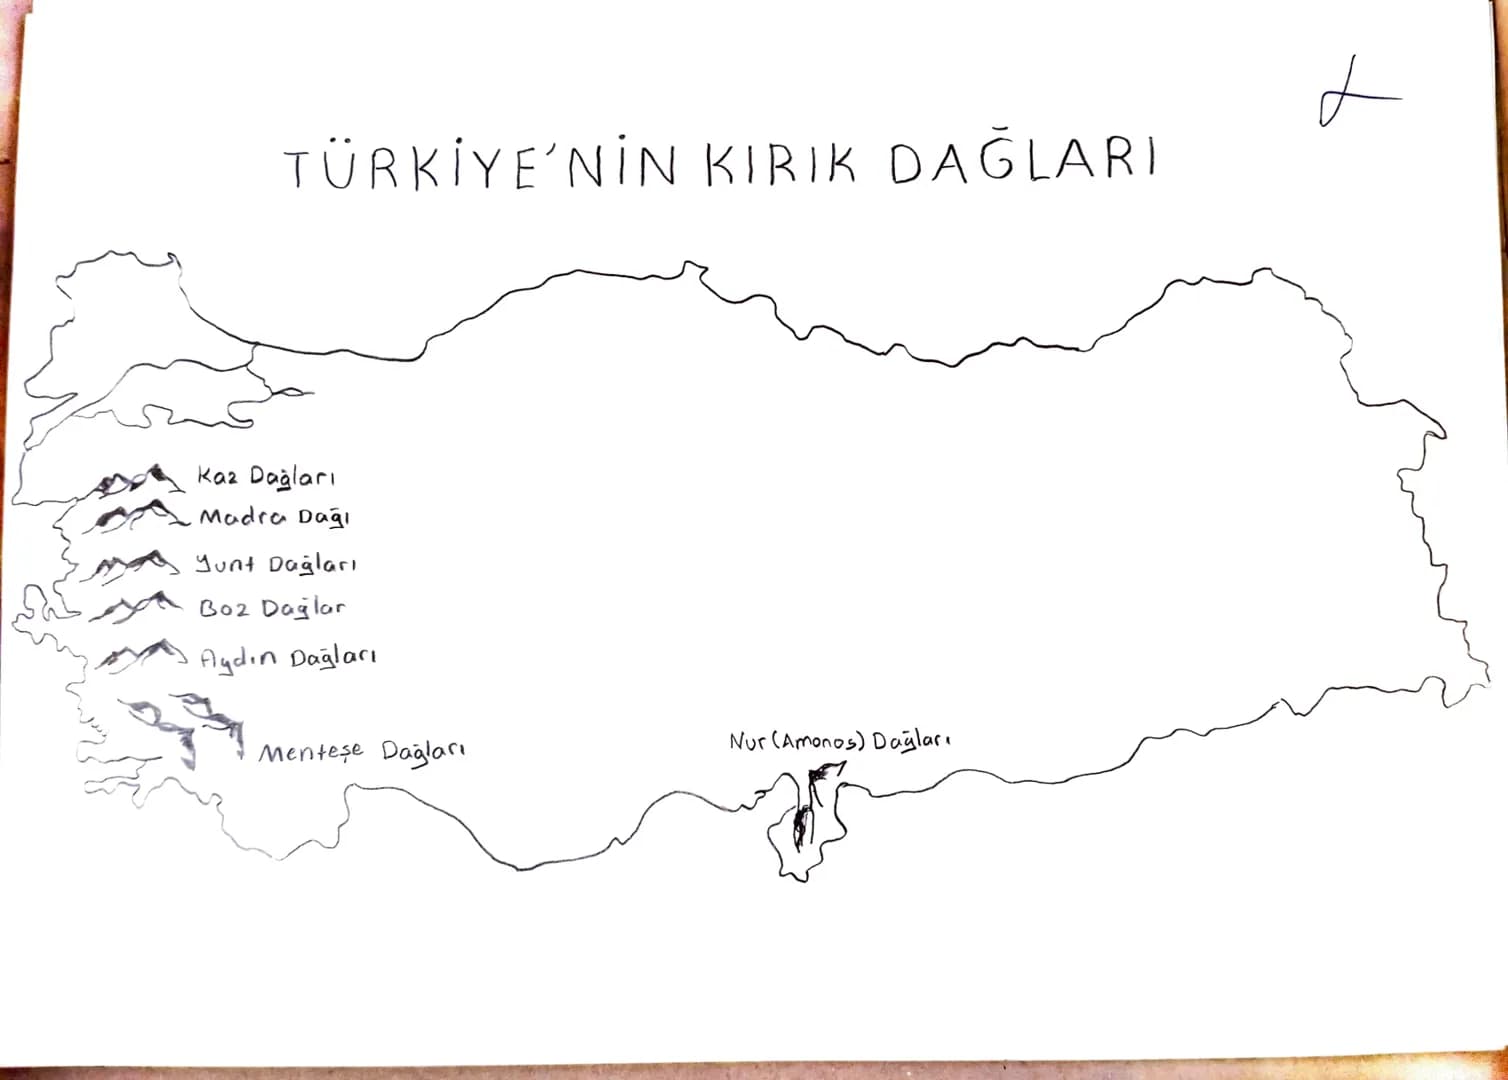 TÜRKİYE'NİN KIRIK DAĞLARI
Kaz Dağları
Madra Dağı
Yunt Dağları
Boz Dağlar
Aydın Dağları
Menteşe Dağları
Nur (Amonos) Dağları